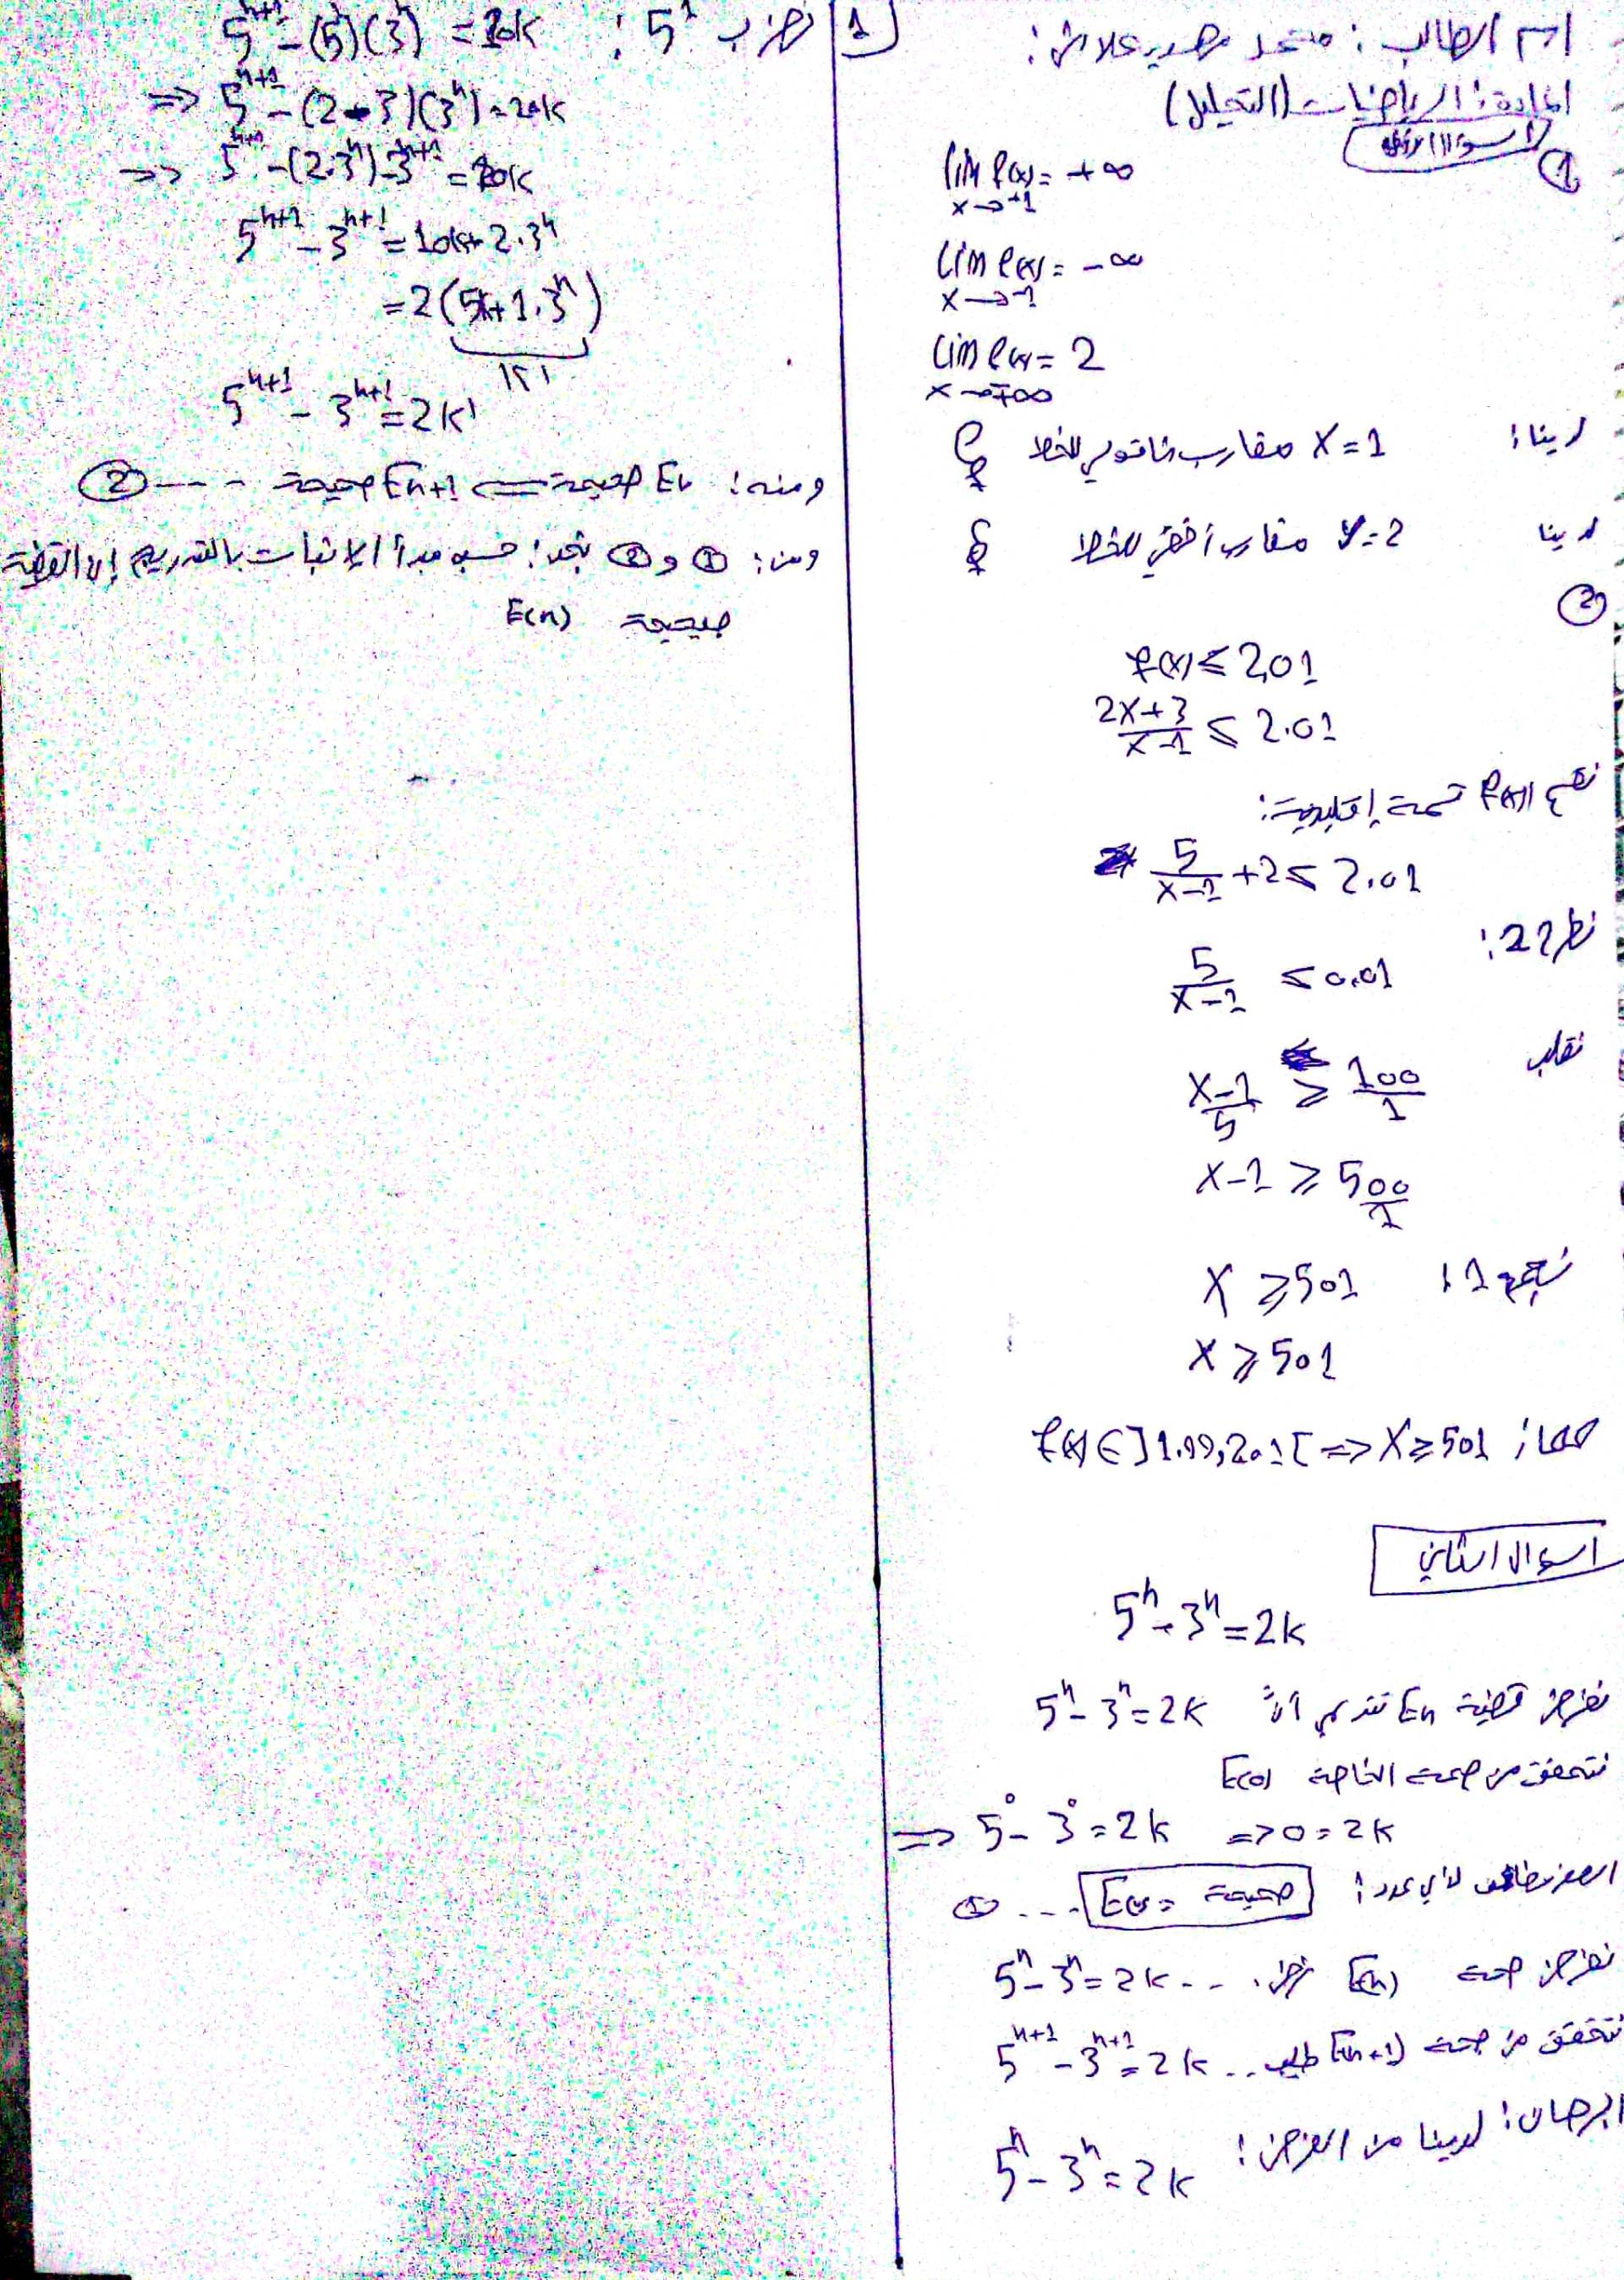 اسم الطالب : محمد
المادة : الرياضيات (التحليل)
السؤال الأول
①
lim f(x) = +∞
x→+1
lim f(x) = -∞
x→-1
lim f(x) = 2
x→∓∞
لدينا : x = 1 مقارب شاقولي للخط C_f
لدينا y = 2 مقارب أفقي للخط C_f
②
f(x) ≤ 2,01
2x+3/x-1 ≤ 2.01
f(x) قسمة إقليدية :
5/x-1 + 2 ≤ 2.01
نطرح 2 :
5/x-1 ≤ 0.01
نقلب
x-1/5 ≥ 100/1
x-1 ≥ 500/1
نجمع 1 : x ≥ 501
x ≥ 501
f(x) ∈ ]1.99, 2.01[ => x ≥ 501
السؤال الثاني
5^n - 3^n = 2k
نفرض قضية En تدل أن 5^n - 3^n = 2k
نتحقق من صحة الخاصة E(0)
=> 5^0 - 3^0 = 2k => 0 = 2k
الصفر مضاعف لأي عدد : E(0) = صحيحة ... ①
نفرض صحة E(n) فرض .. 5^n - 3^n = 2k
نتحقق من صحة E(n+1) طلب .. 5^{n+1} - 3^{n+1} = 2k
البرهان : لدينا من الفرض : 5^n - 3^n = 2k
1 نضرب 5^1 : 5^{n+1} - (5)(3^n) = 10k
=> 5^{n+1} - (2+3)(3^n) = 10k
=> 5^{n+1} - (2.3^n) - 3^{n+1} = 10k
5^{n+1} - 3^{n+1} = 10k + 2.3^n
= 2(5k + 1.3^n)
k'
5^{n+1} - 3^{n+1} = 2k'
ومنه : En صحيحة <= En+1 صحيحة ---- ②
ومن : ① و ② نجد : حسب مبدأ الإثبات بالتدريج إن القضية
E(n) صحيحة